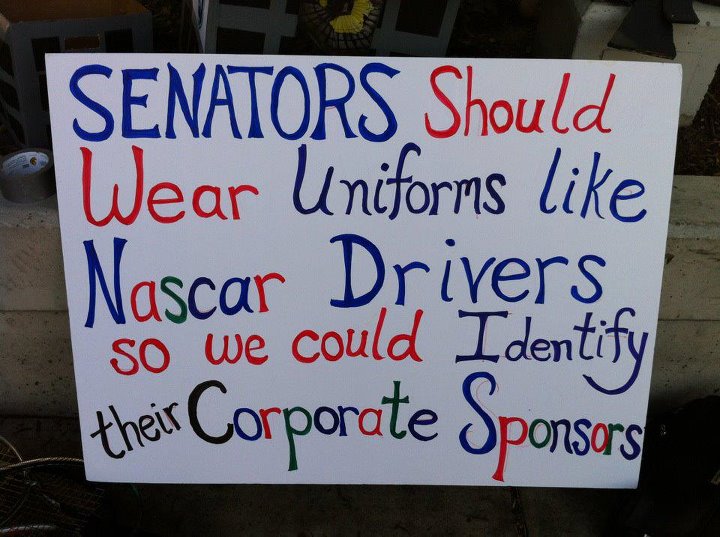 SENATORS Should
Wear Uniforms like
Nascar Drivers
so we could Identify
their Corporate Sponsors